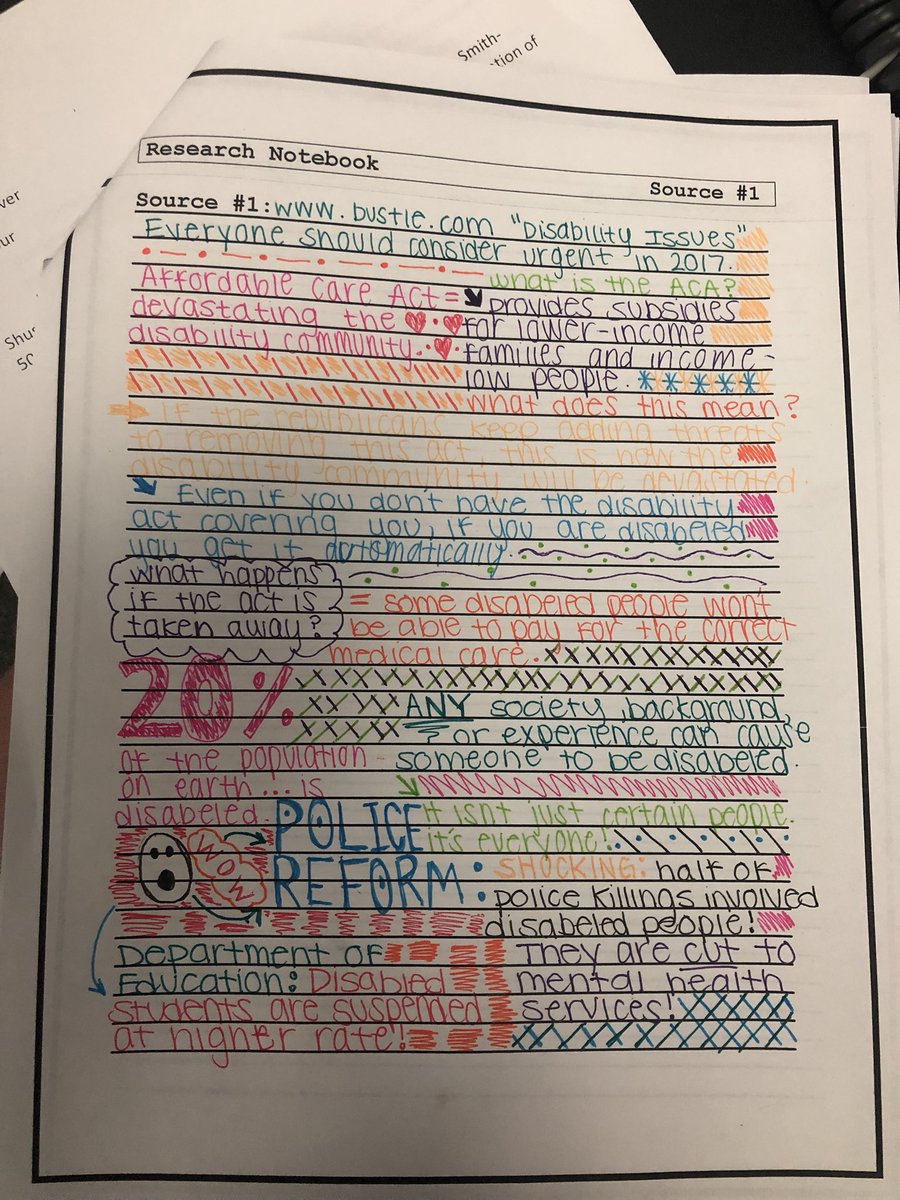 Smith-
-tion of
ver
ur
Shu
50
Research Notebook
Source #1
Source #1: www.bustle.com "Disability Issues"
Everyone should consider urgent in 2017.
Affordable Care Act =
devastating the
disability community.
what is the ACA?
provides subsidies
for lower-income
families and income-
low people.
What does this mean?
If the republicans keep adding threats
to removing this act, this is how the
disability community will be devastated.
Even if you don't have the disability
act covering you, if you are disabeled
you get it automatically.
What happens
if the act is
taken away?
= some disabeled people won't
be able to pay for the correct
medical care.
20%
of the population
on earth... is
disabeled.
ANY society, background,
or experience can cause
someone to be disabeled.
it isn't just certain people.
it's everyone!
WOW
POLICE
REFORM:
SHOCKING: half of
police killings involved
disabeled people!
Department of
Education: Disabled
students are suspended
at higher rate!
They are cut to
mental health
services!